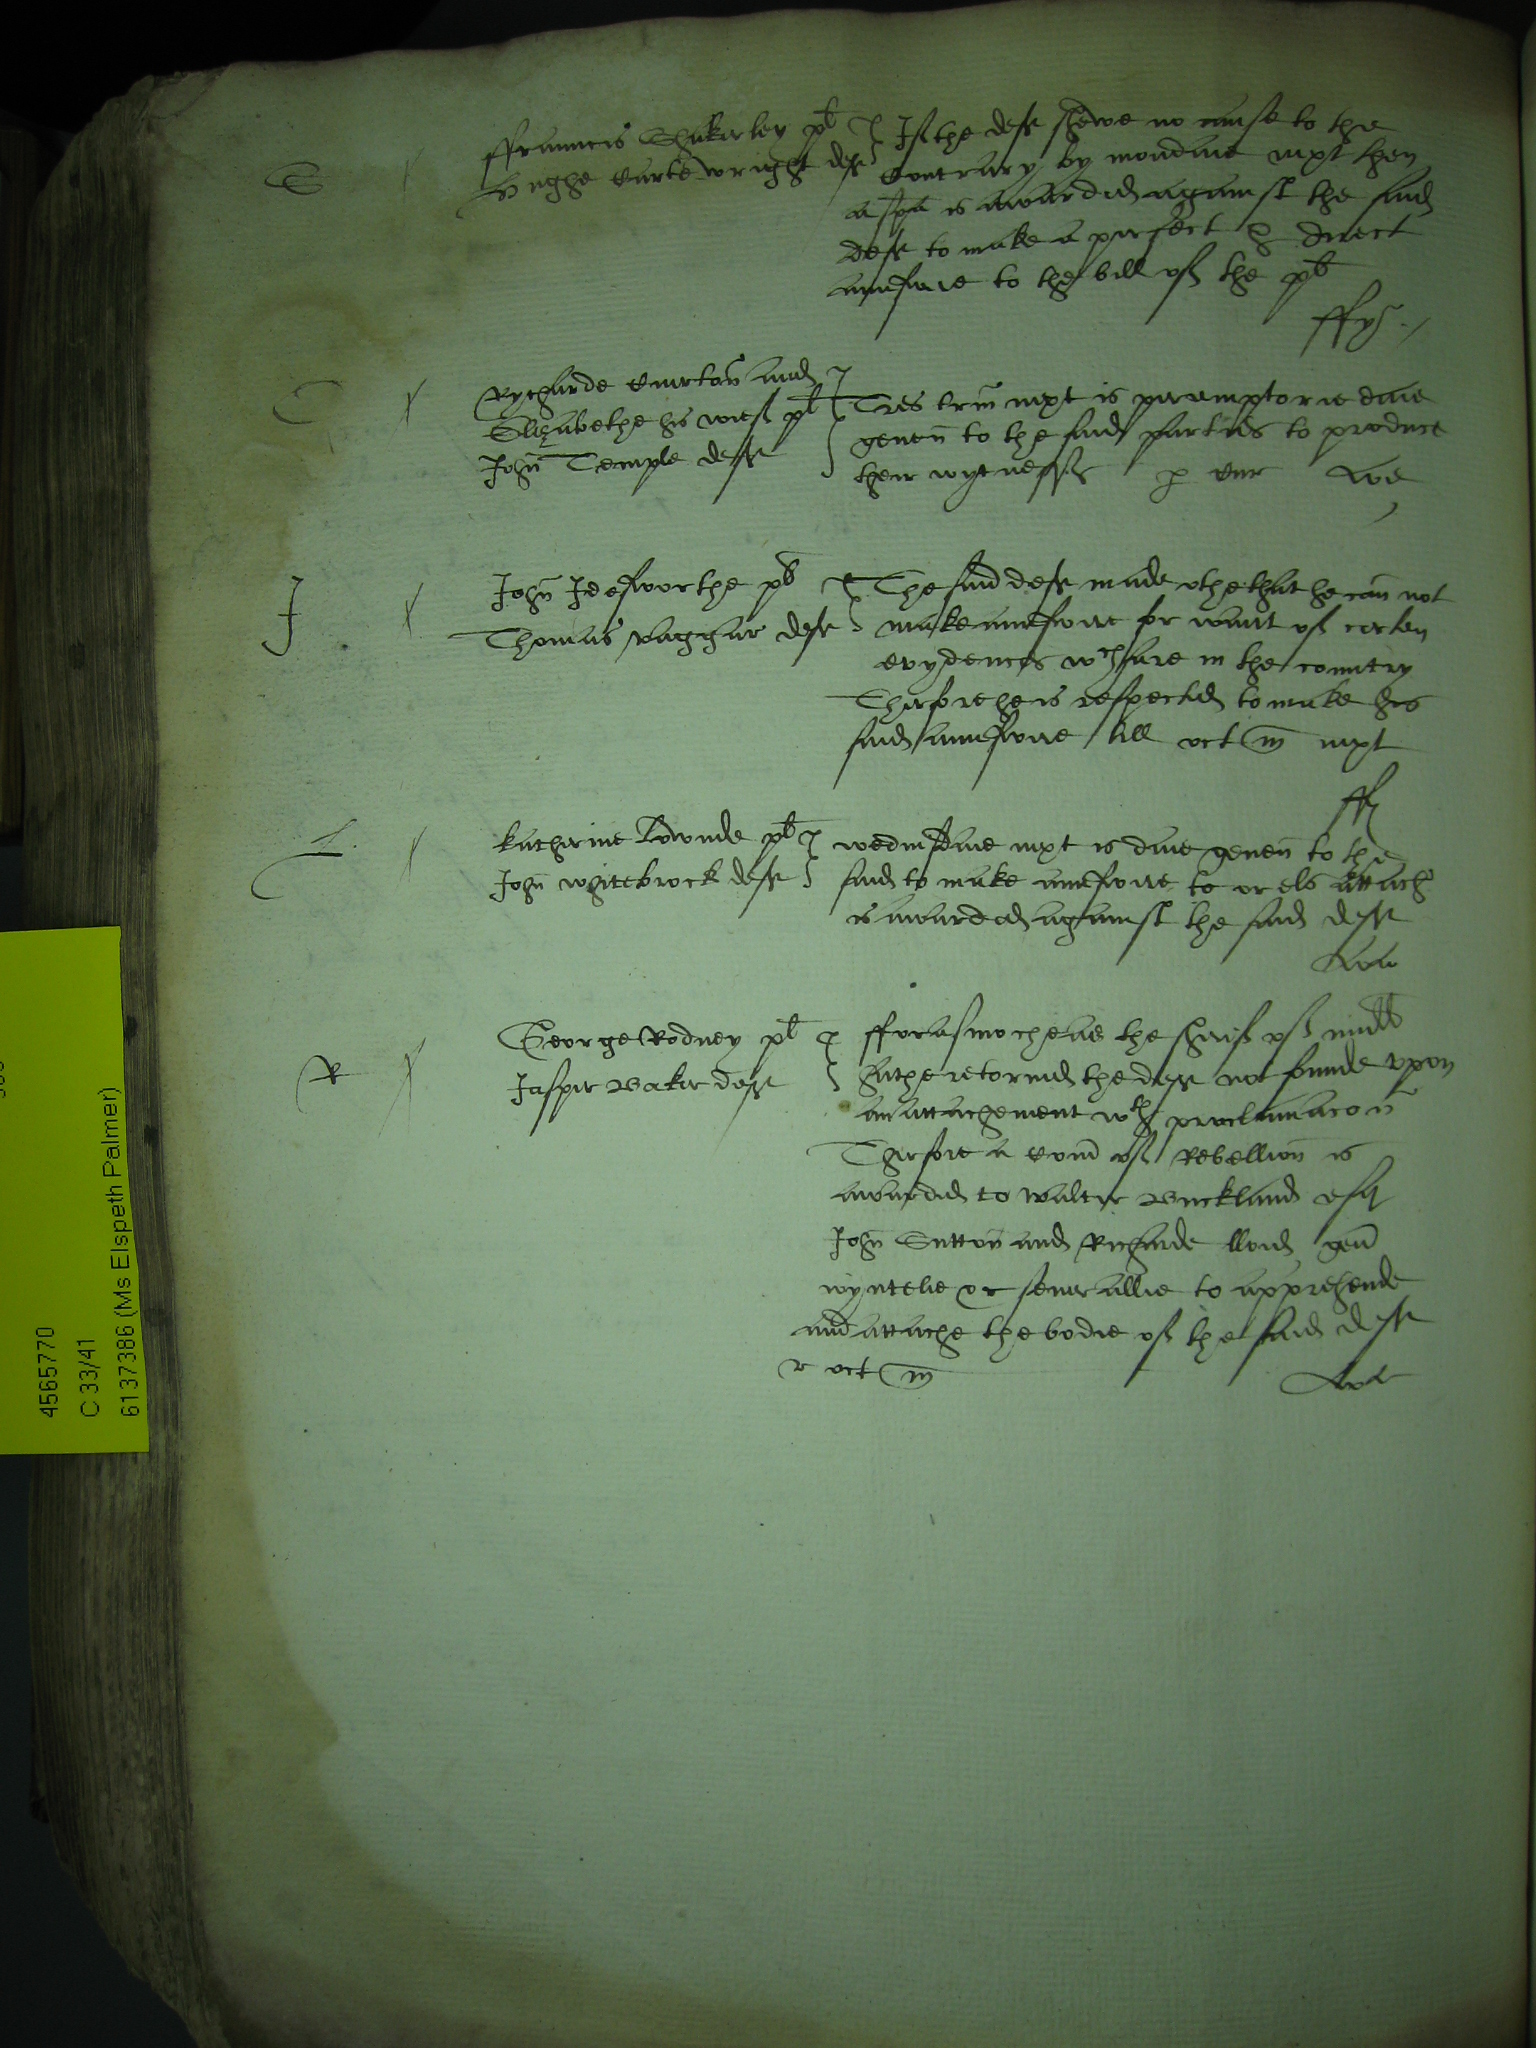 S
ffrauncis Shakerley pl
Hughe Cartewright def
If the def shewe no cause to the
contrary by mondaie next then
a spa is awarded against the said
def to make a perfect & direct
aunswere to the bill of the pl
C
Rycharde Curton and
Elizabethe his wief pl
John Temple def
Tres trin next is peremptorie daie
geven to the said parties to produce
their wytnesses p Cur
J
John Jeesworthe pl
Thomas vaghar def
The said def made othe that he can not
make aunswere for want of certen
evydences wch are in the country
Therfore he is respected to make his
said aunswere till oct m next
L
Katherine Lownde pl
John Whitebrock def
wednesdaie next is daie geven to the
said to make aunswere to or els attach
is awarded against the said def
R
George Rodney pl
Jasper Baker def
fforasmoche as the shrief of midd
hathe retorned the def not founde vpon
an attachement wth proclamacon
Therfore a Com of Rebellion is
awarded to Walter Buckland esq
John Sutton and Richarde lloid gen
ioyntelie or severallie to apprehende
and attache the bodie of the said def
r oct m
4565770
C 33/41
6137386 (Ms Elspeth Palmer)